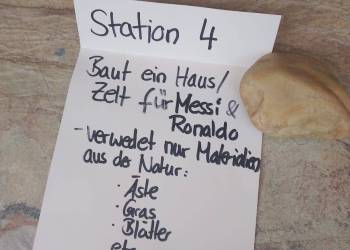 Station 4
Baut ein Haus/
Zelt für Messi &
Ronaldo
- verwedet nur Materialien
aus der Natur:
· Äste
· Gras
· Blätter
etc.